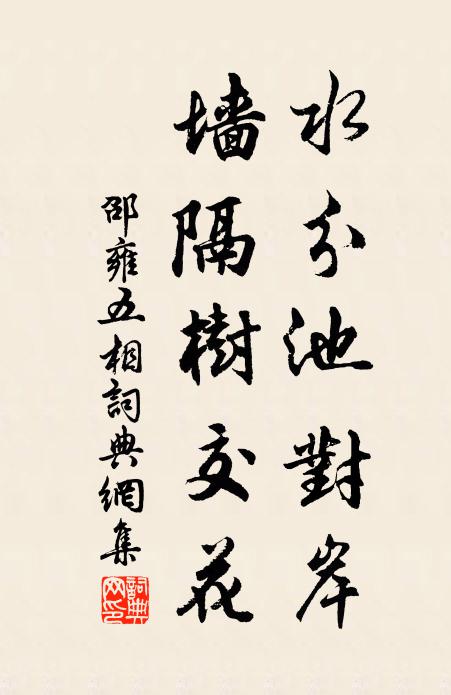 水分池對岸
墙隔樹交花
邵雍五相詞典網集
詞典网印